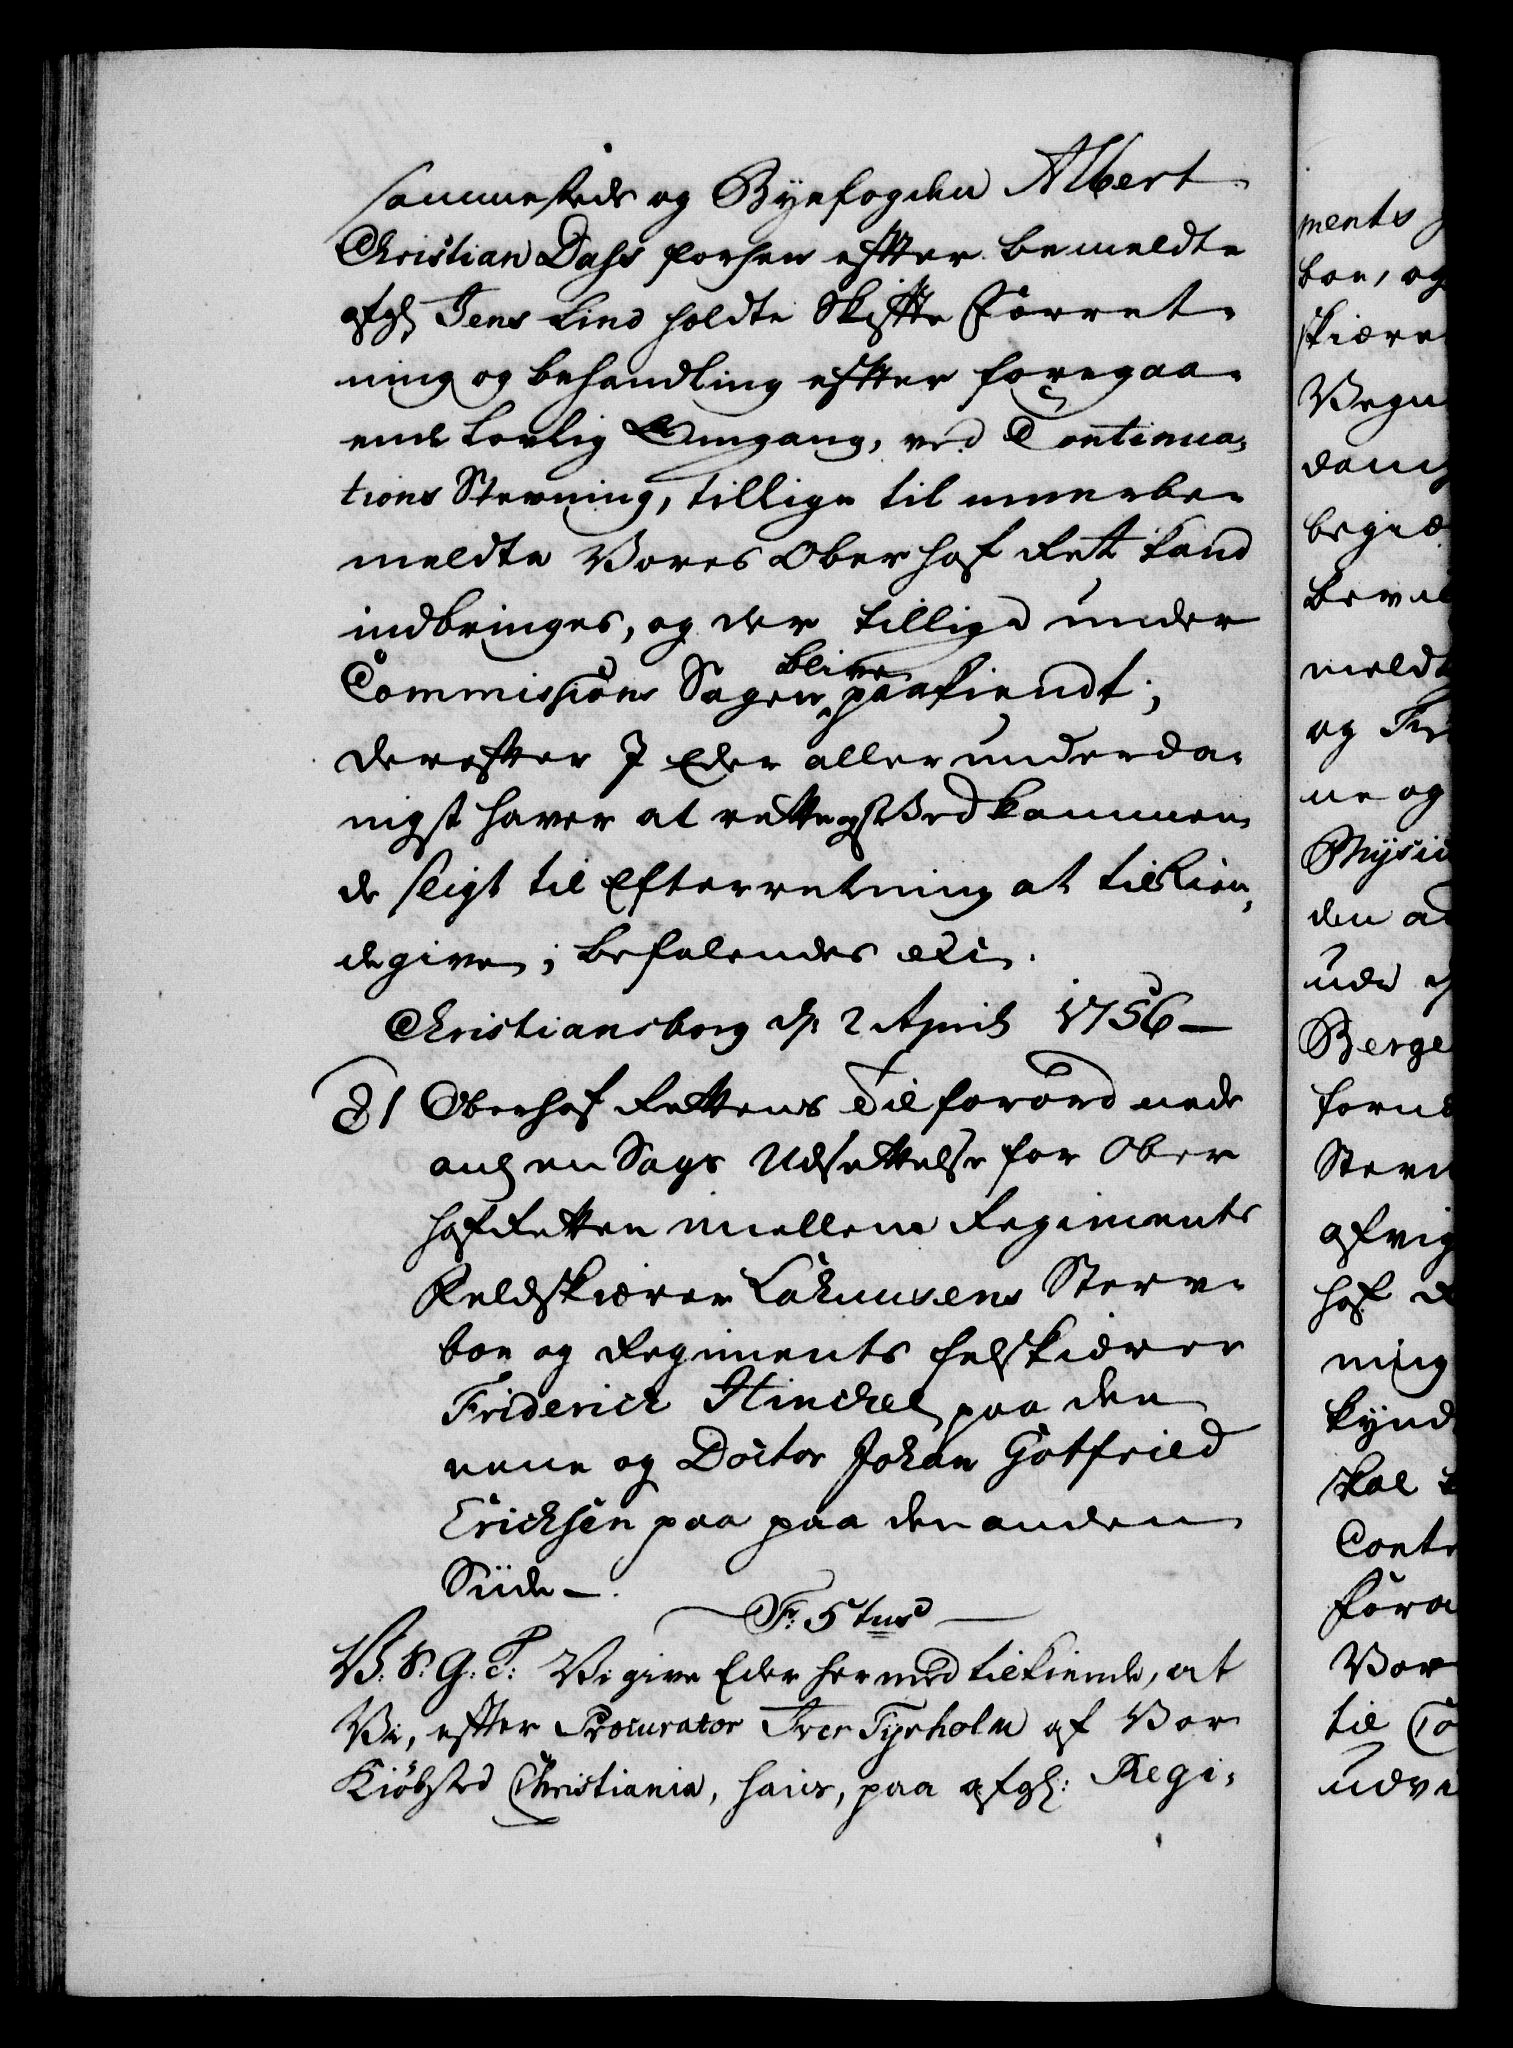 sammesteds og Byefogden Albert
Christian Dass forhen efter bemeldte
afgl Jens Lind holdte Skifte Forret-
ning og behandling efter foregaa-
ende lovlig Omgang, ved Continua-
tions Stevning, tillige til meerbe-
meldte Vores Oberhof Ret kand
indbringes, og der tillige under
Commissions Sagen blive paakiendt;
derefter I Eder allerunderda-
nigst haver at rette og Vedkommen-
de sligt til Efterretning at tilkien-
degive; befalendes etc.
Christiansborg d. 2 April 1756
81 Oberhof Rettens Tilforordnede
ang en Sags Udsettelse for Ober
hofRetten mellem Regiments
Feldskiærer Lohmusens Sterv-
boe og Regiments Felskiærer
Friderich Hinckel paa den
eene og Doctor Johan Gotfried
Erichsen paa paa den anden
Siide.
Fr: 5tus
V. S. G. T: Vi give Eder hermed tilkiende, at
Vi, efter Procurator Iver Tyrholm af Vor
Kiøbsted Christiania, hans, paa afgl: Regi-
ments
boe, og
skiære
Vegn
dan
begiæ
bevil
meldt
og
ne og
Physii
den
ude
Berge
forn
Stev
afvig
hof
ning
kynd
skal
Cont
Fora
Vor
til Co
udvi